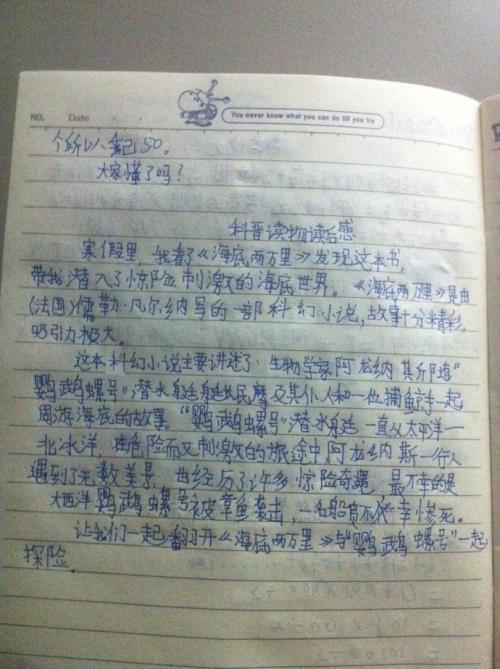 NO.
Date
You never know what you can do till you try
个所以八 150。
大家懂了吗?
科普读物读后感
寒假里,我看了《海底两万里》发现这本书,
带我潜入了惊险刺激的海底世界。《海底两万里》是由
(法国)儒勒·凡尔纳写的一部科幻小说,故事十分精彩,
吸引力极大。
这本科幻小说主要讲述了:生物学家阿龙纳斯跟随"
鹦鹉螺号"潜水艇艇长尼摩及其仆人和一位捕鲸手一起
周游海底的故事。"鹦鹉螺号"潜水艇一直从太平洋—
北冰洋,在危险而又刺激的旅途中阿龙纳斯一行人
遇到了无数美景,也经历了许多惊险奇遇,最不幸的是
大西洋鹦鹉螺号被章鱼袭击,一名船员不幸惨死。
让我们一起翻开《海底两万里》与"鹦鹉螺号"一起
探险。